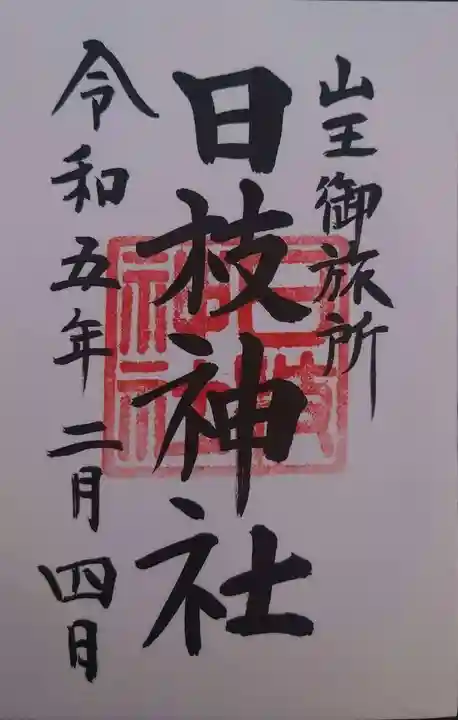 山王御旅所
日枝神社
日枝神社
令和五年二月四日